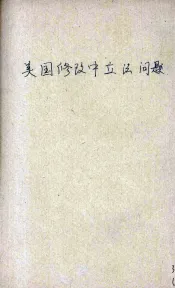 美国修改中立法问题